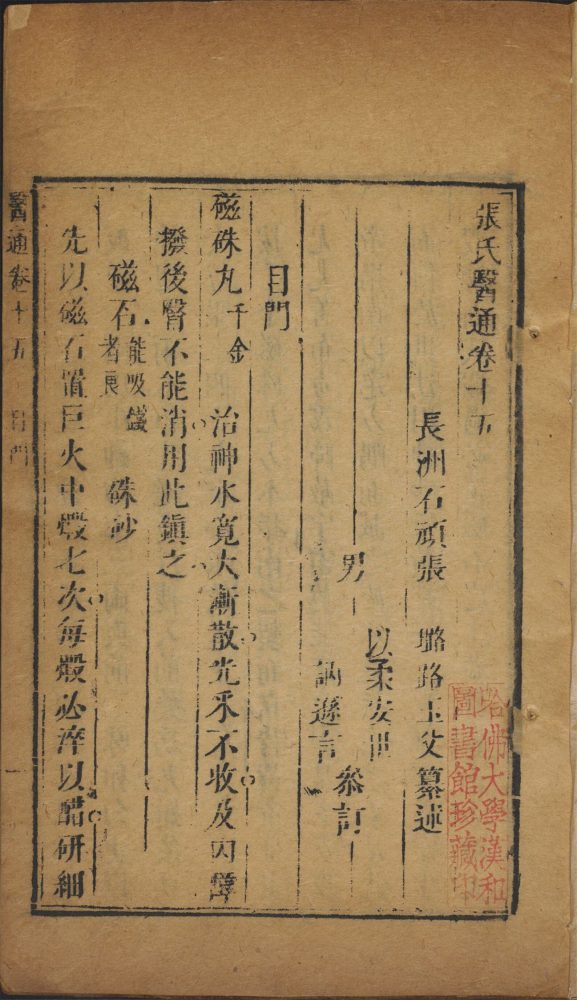 張氏醫通卷十五
長洲石頑張 璐路玉父纂述
男 以柔安世
訒遜言 參訂
目門
磁硃丸 千金 治神水寬大漸散光采不收及內障
撥後瞖不能消用此鎮之
磁石 能吸鐵者良 硃砂
先以磁石置巨火中煅七次每煅必淬以醋研細
醫通卷十五 目門 一
哈佛大學漢和圖書館珍藏印